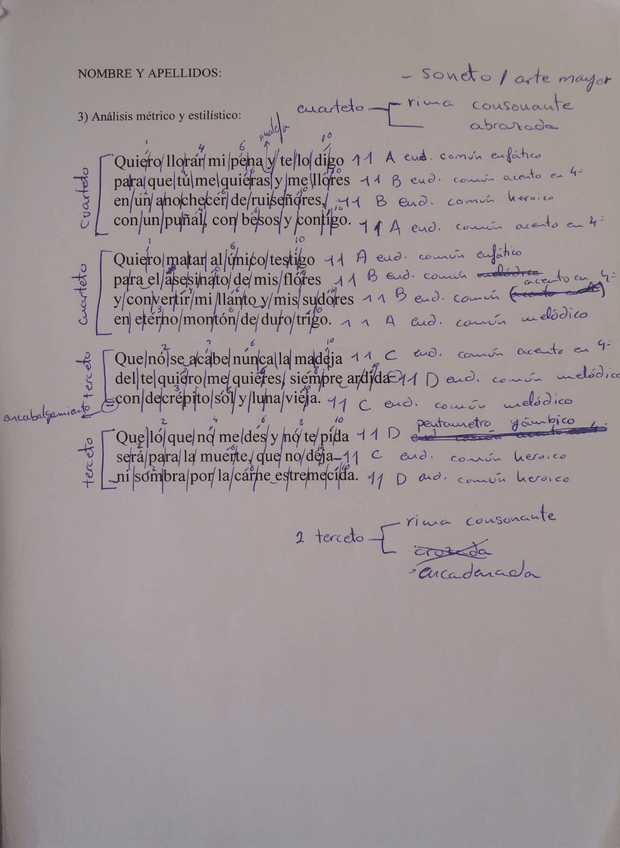 - soneto / arte mayor
NOMBRE Y APELLIDOS:
cuarteto rima consonante
abrazada
3) Análisis métrico y estilístico:
cuarteto
Quiero llorar mi pena y te lo digo 11 A end. común enfático
para que tú me quieras y me llores 11 B end. común acento en 4ª
en un anochecer de ruiseñores, 11 B end. común heroico
con un puñal, con besos y contigo. 11 A end. común acento en 4ª
cuarteto
Quiero matar al único testigo 11 A end. común enfático
para el asesinato de mis flores 11 B end. común melódico acento en 4ª
y convertir mi llanto y mis sudores 11 B end. común
en eterno montón de duro trigo. 11 A end. común melódico
terceto
Que no se acabe nunca la madeja 11 C end. común acento en 4ª
del te quiero me quieres, siempre ardida 11 D end. común melódico
encabalgamiento
con decrépito sol y luna vieja. 11 C end. común melódico
terceto
Que lo que no me des y no te pida 11 D pentametro yámbico
será para la muerte, que no deja 11 C end. común heroico
ni sombra por la carne estremecida. 11 D end. común heroico
2 terceto rima consonante
cruzada
encadenada